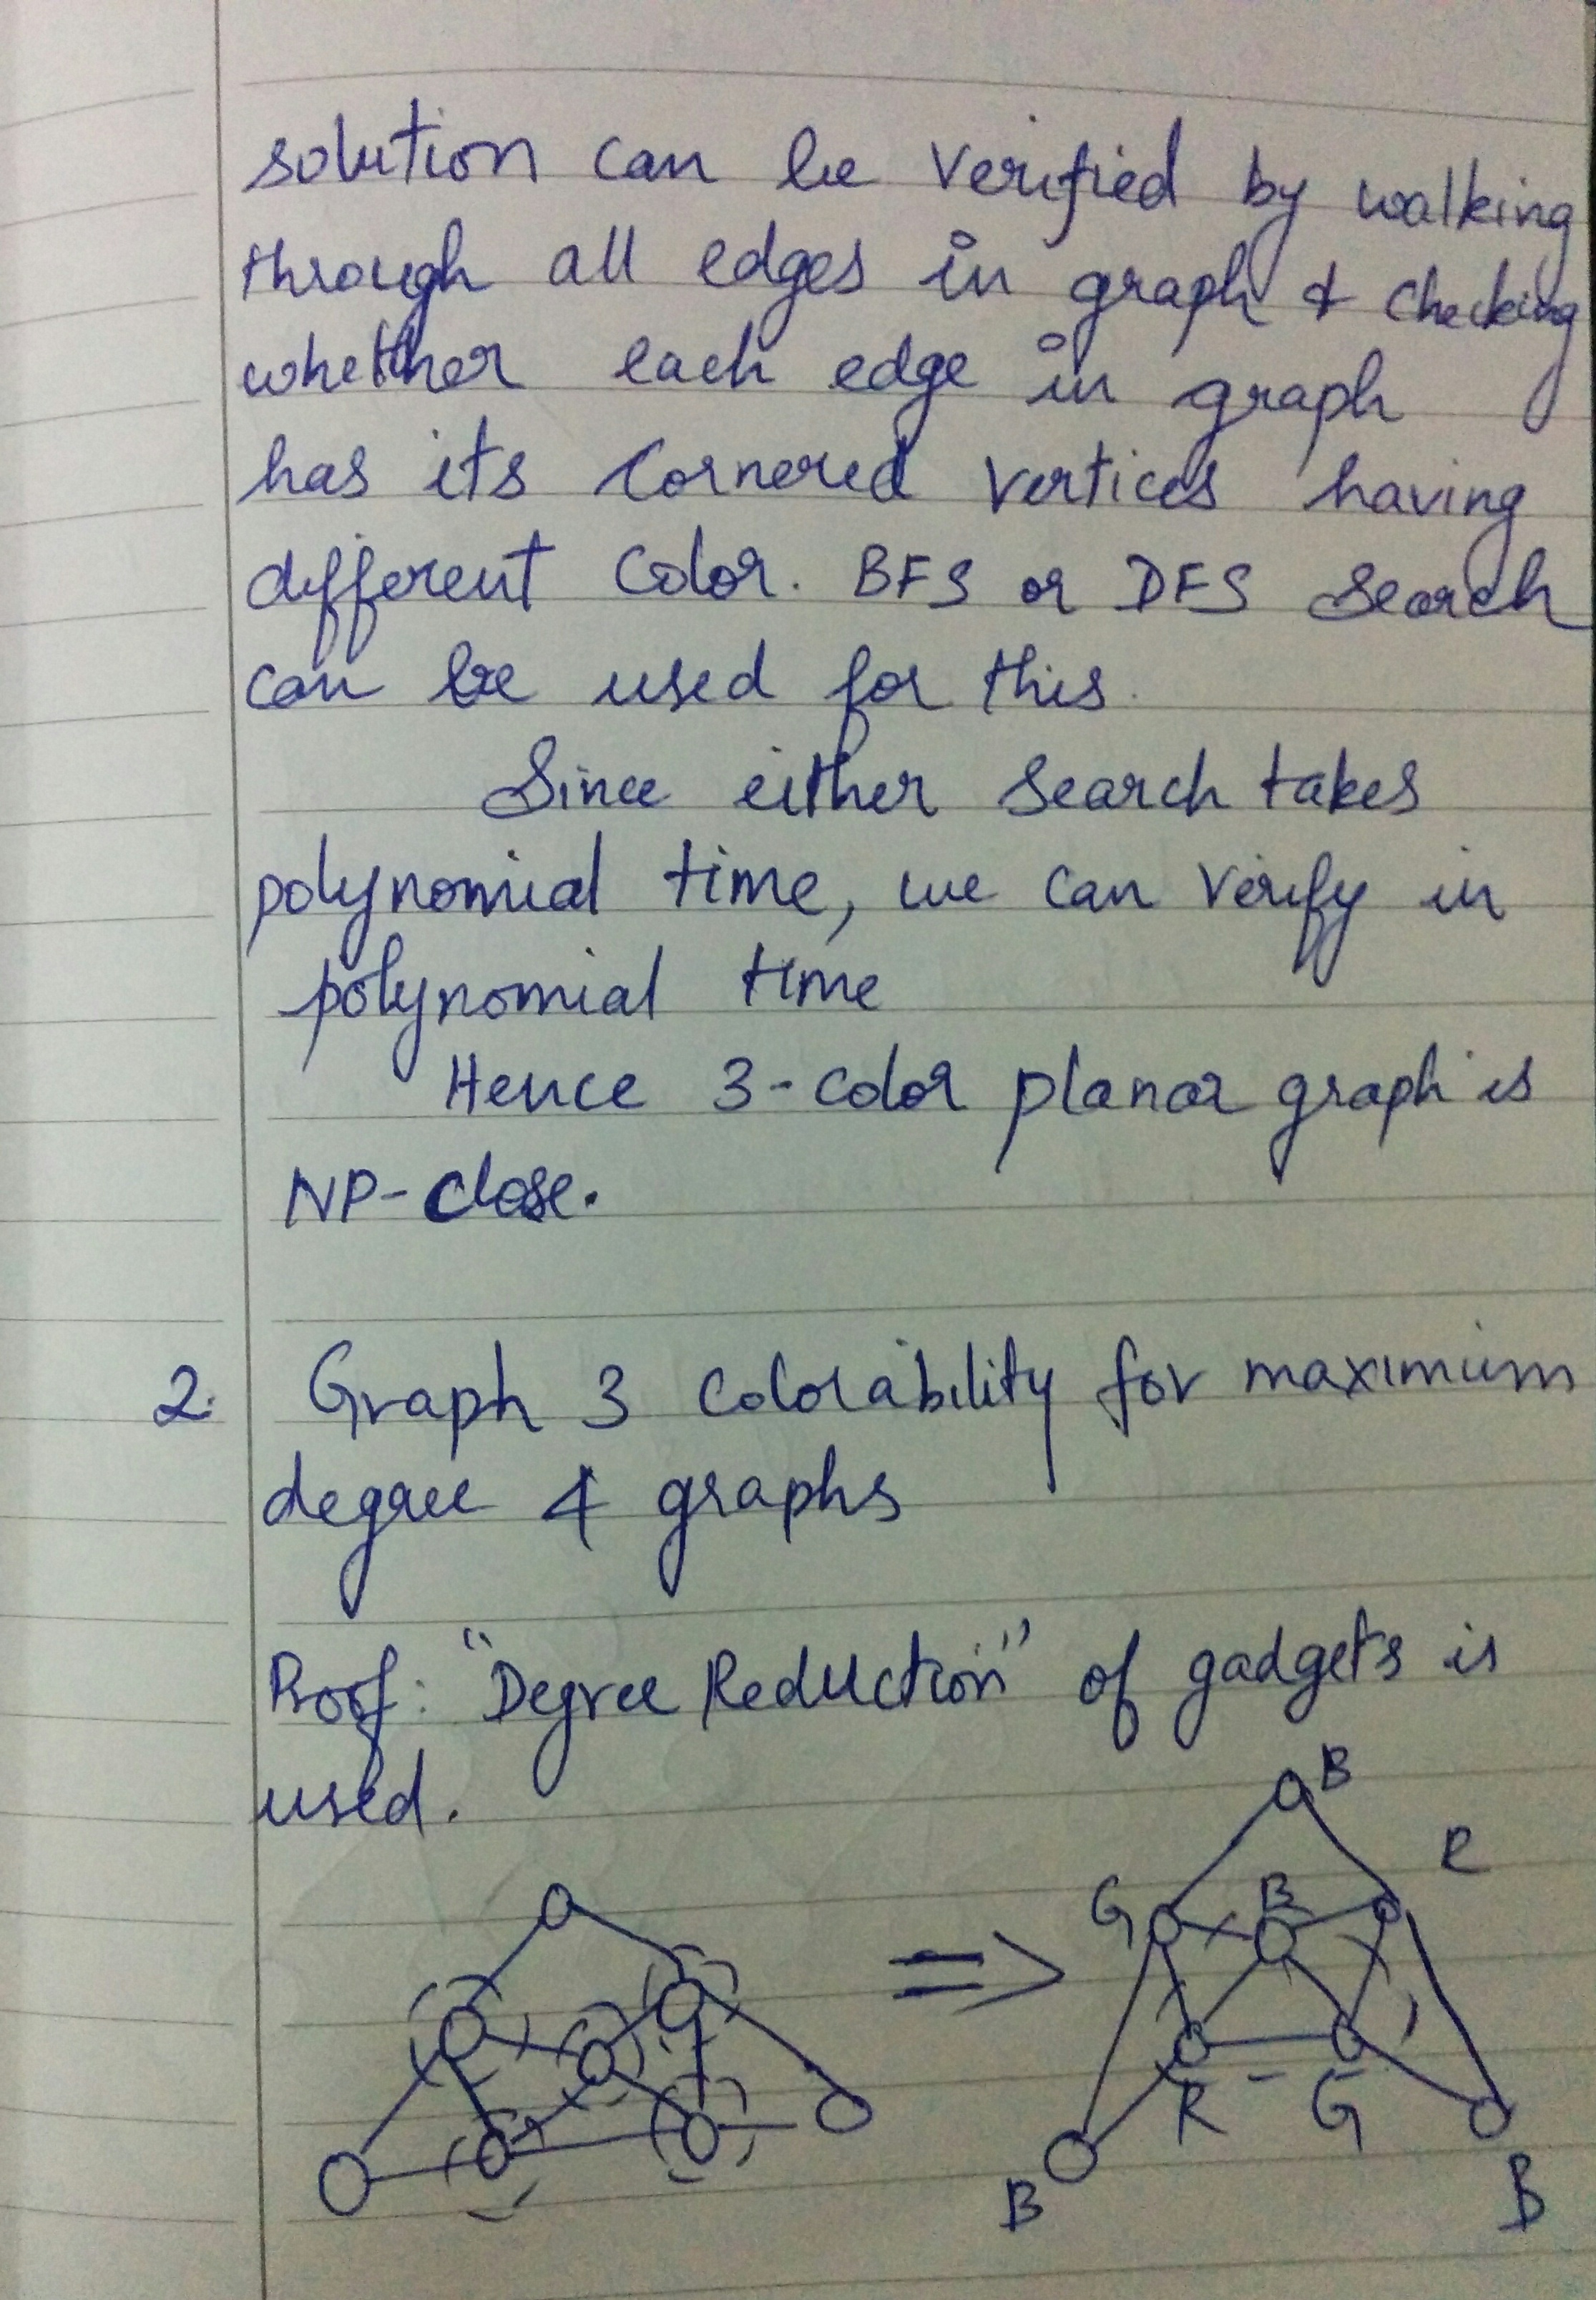 solution can be verified by walking
through all edges in graph & checking
whether each edge in graph
has its cornered vertices having
different color. BFS or DFS search
can be used for this.
Since either search takes
polynomial time, we can verify in
polynomial time
Hence 3-color planar graph is
NP-close.
2. Graph 3 colorability for maximum
degree 4 graphs
Proof: "Degree Reduction" of gadgets is
used.
B
R
G B
R G
B B